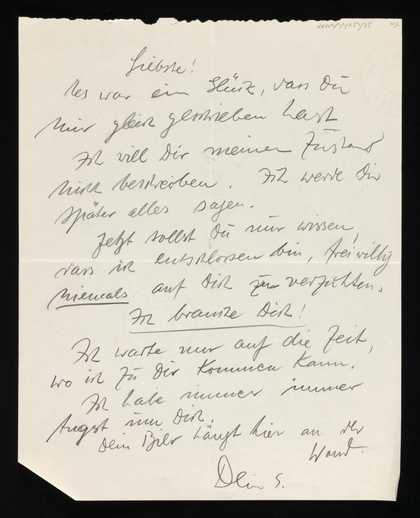 Liebste!
Es war ein Glück, dass Du
mir gleich geschrieben hast
Ich will Dir meinen Zustand
nicht beschreiben. Ich werde Dir
später alles sagen.
Jetzt sollst Du nur wissen,
dass ich entschlossen bin, freiwillig
niemals auf Dich zu verzichten.
Ich brauche Dich!
Ich warte nur auf die Zeit,
wo ich zu Dir kommen kann.
Ich habe immer immer
Angst um Dich.
Dein Bild hängt hier an der
Wand.
Dein S.